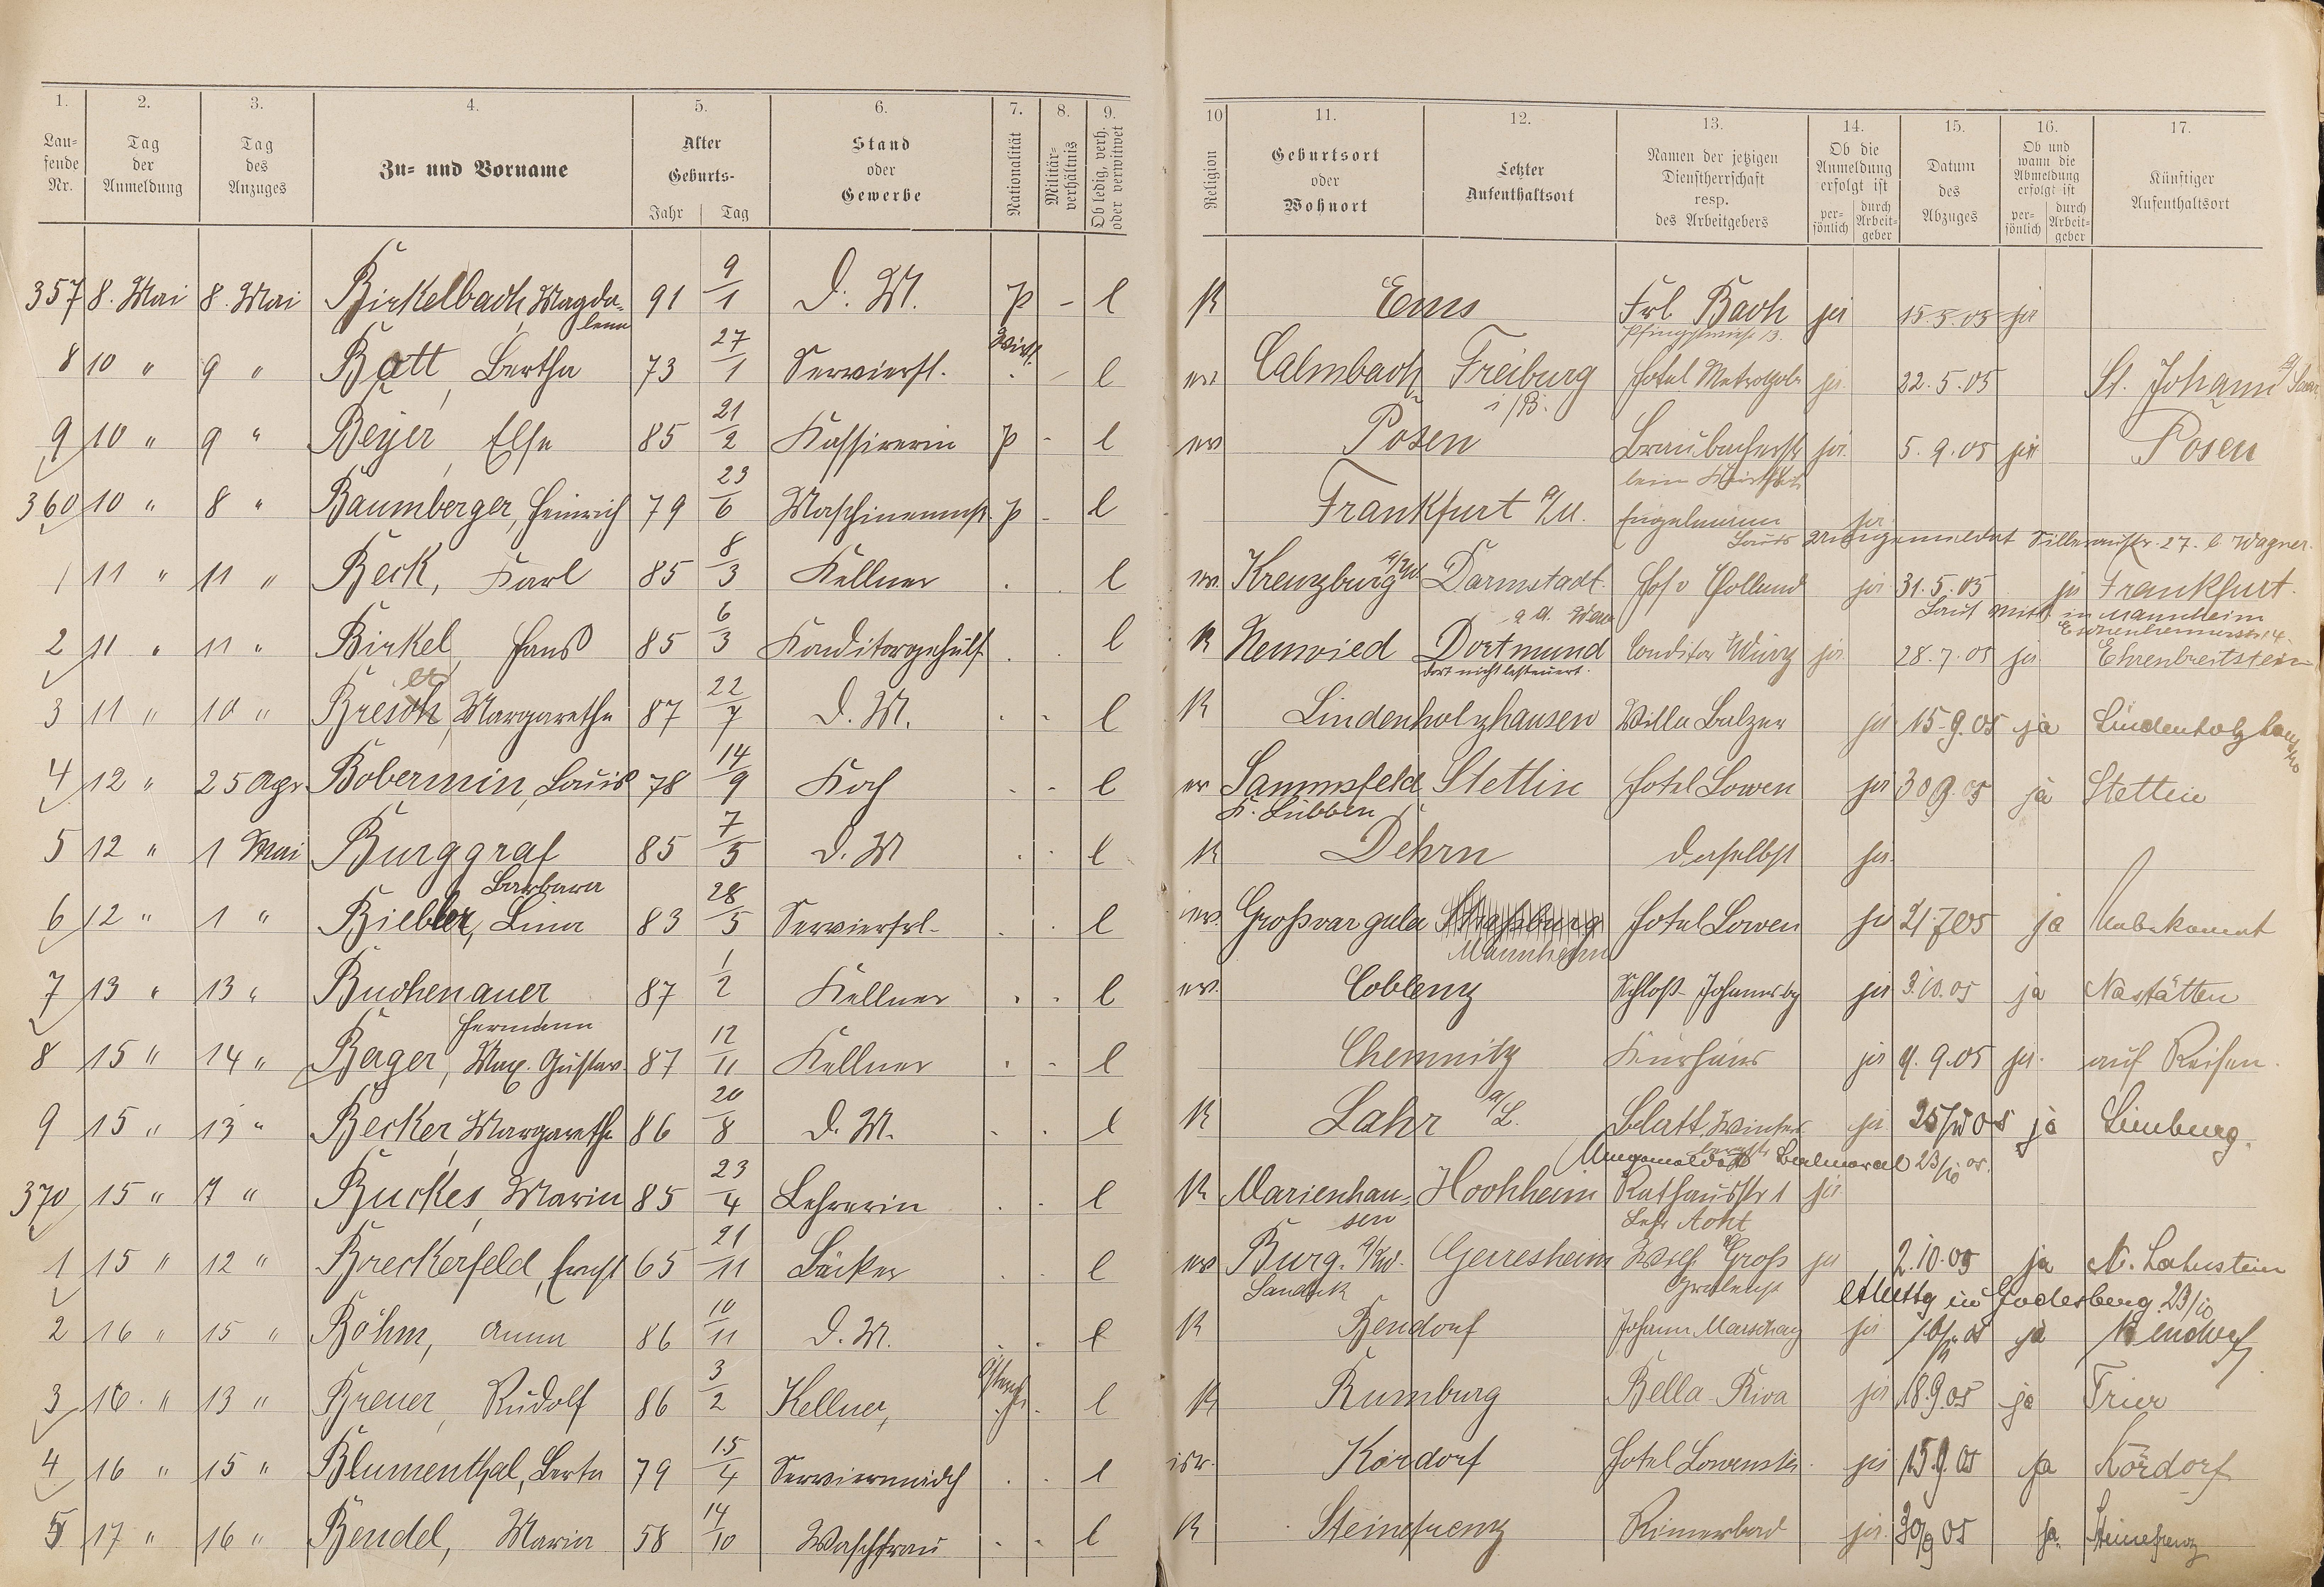 1. 2. 3. 4. 5. 6. 7. 8. 9. 10 11. 12. 13. 14. 15. 16. 17.
Lau-
fende
Nr.
Tag
der
Anmeldung
Tag
des
Anzuges
Zu- und Vorname
Alter
Geburts-
Jahr Tag
Stand
oder
Gewerbe
Nationalität
Militär-
verhältnis
Ob ledig, verh.
oder verwitwet
Religion
Geburtsort
oder
Wohnort
Letzter
Aufenthaltsort
Namen der jetzigen
Dienstherrschaft
resp.
des Arbeitgebers
Ob die
Anmeldung
erfolgt ist
per-
sönlich
durch
Arbeit-
geber
Datum
des
Abzuges
Ob und
wann die
Abmeldung
erfolgt ist
per-
sönlich
durch
Arbeit-
geber
Künftiger
Aufenthaltsort
357 8. Mai 8. Mai Birkelbach, Magda- 91 9/1 D. M. p - l K Ems Frl. Bach ja 15.5.05 ja
lena
8 10 " 9 " Bott, Bertha 73 27/1 Servierfl. l ev. Calmbach Freiburg Hotel Metropole ja 22.5.05 St. Johann a/Saar
i/B.
9 10 " 9 " Beyer, Else 85 21/2 Kassirerin p - l ev Posen ja 5.9.05 ja Posen
360 10 " 8 " Baumberger, Heinrich 79 23/6 p - l Frankfurt a/M. Engelmann ja
Laut 27. b. Wagner.
1 11 " 11 " Beck, Karl 85 8/3 Kellner l ev. Kreuzburg Darmstadt Hof v Holland ja 31.5.05 ja Frankfurt.
Laut in Mannheim
2 11 " 11 " Birkel, Hans 85 6/3 Konditorgehülf l K Neuwied Dortmund Conditor Wirz ja 28.7.05 ja Ehrenbreitstein
dort nicht besteuert.
3 11 " 10 " Margarethe 87 22/7 D. M. l K Lindenholzhausen Villa Balzer ja 15.9.05 ja Lindenholzhausen
4 12 " 25 Apr Bobermin, Louis 78 14/9 Koch l ev Stettin Hotel Löwen ja 30 9.05 ja Stettin
K. Lübben
5 12 " 1 Mai Burggraf 85 7/5 D. M l K Dehrn daselbst ja
Barbara
6 12 " 1 " Biebler, Lina 83 28/5 Servierfrl. l ev. Grossvargula Strassburg Hotel Löwen ja 21.7 05 ja Unbekannt
Mannheim
7 13 " 13 " Buchenauer 87 1/2 Kellner l ev. Coblenz Schloß Johannisbg ja 3.10.05 ja Nastätten
Hermann
8 15 " 14 " Berger, Max. Gustav 87 12/11 Kellner l Chemnitz Kurhaus ja 4.9.05 ja. auf Reisen.
9 15 " 13 " Becker, Margarethe 86 20/8 D. M. l K Lahr a/L. Blatt, Winter ja ja Limburg.
Balmoral 23/10 05.
370 15 " 7 " Buckes, Maria 85 23/4 Lehrerin l K Marienhau- Hochheim Rathausstr 1 ja
sen
1 15 " 12 " Breckerfeld, Ernst 65 21/11 Bäcker l ev Burg. Gerresheim Wilh. Gross ja 2.10.05 ja N. Lahnstein
in Godesberg 23/10
2 16 " 15 " Böhm, Anna 86 10/11 D. M. l K Bendorf Johann Marschang ja ja Bendorf
3 16. " 13 " Breuer, Rudolf 86 3/2 Kellner, l K Rumburg Bella Riva ja 18.9.05 ja Trier
4 16 " 15 " Blumenthal, Berta 79 15/4 Serviermädch l isr. Kördorf ja 15.9.05 ja Kördorf
5 17 " 16 " Bendel, Maria 58 14/10 Waschfrau l K Steinefrenz Römerbad ja. 30/9 05 ja. Steinefrenz